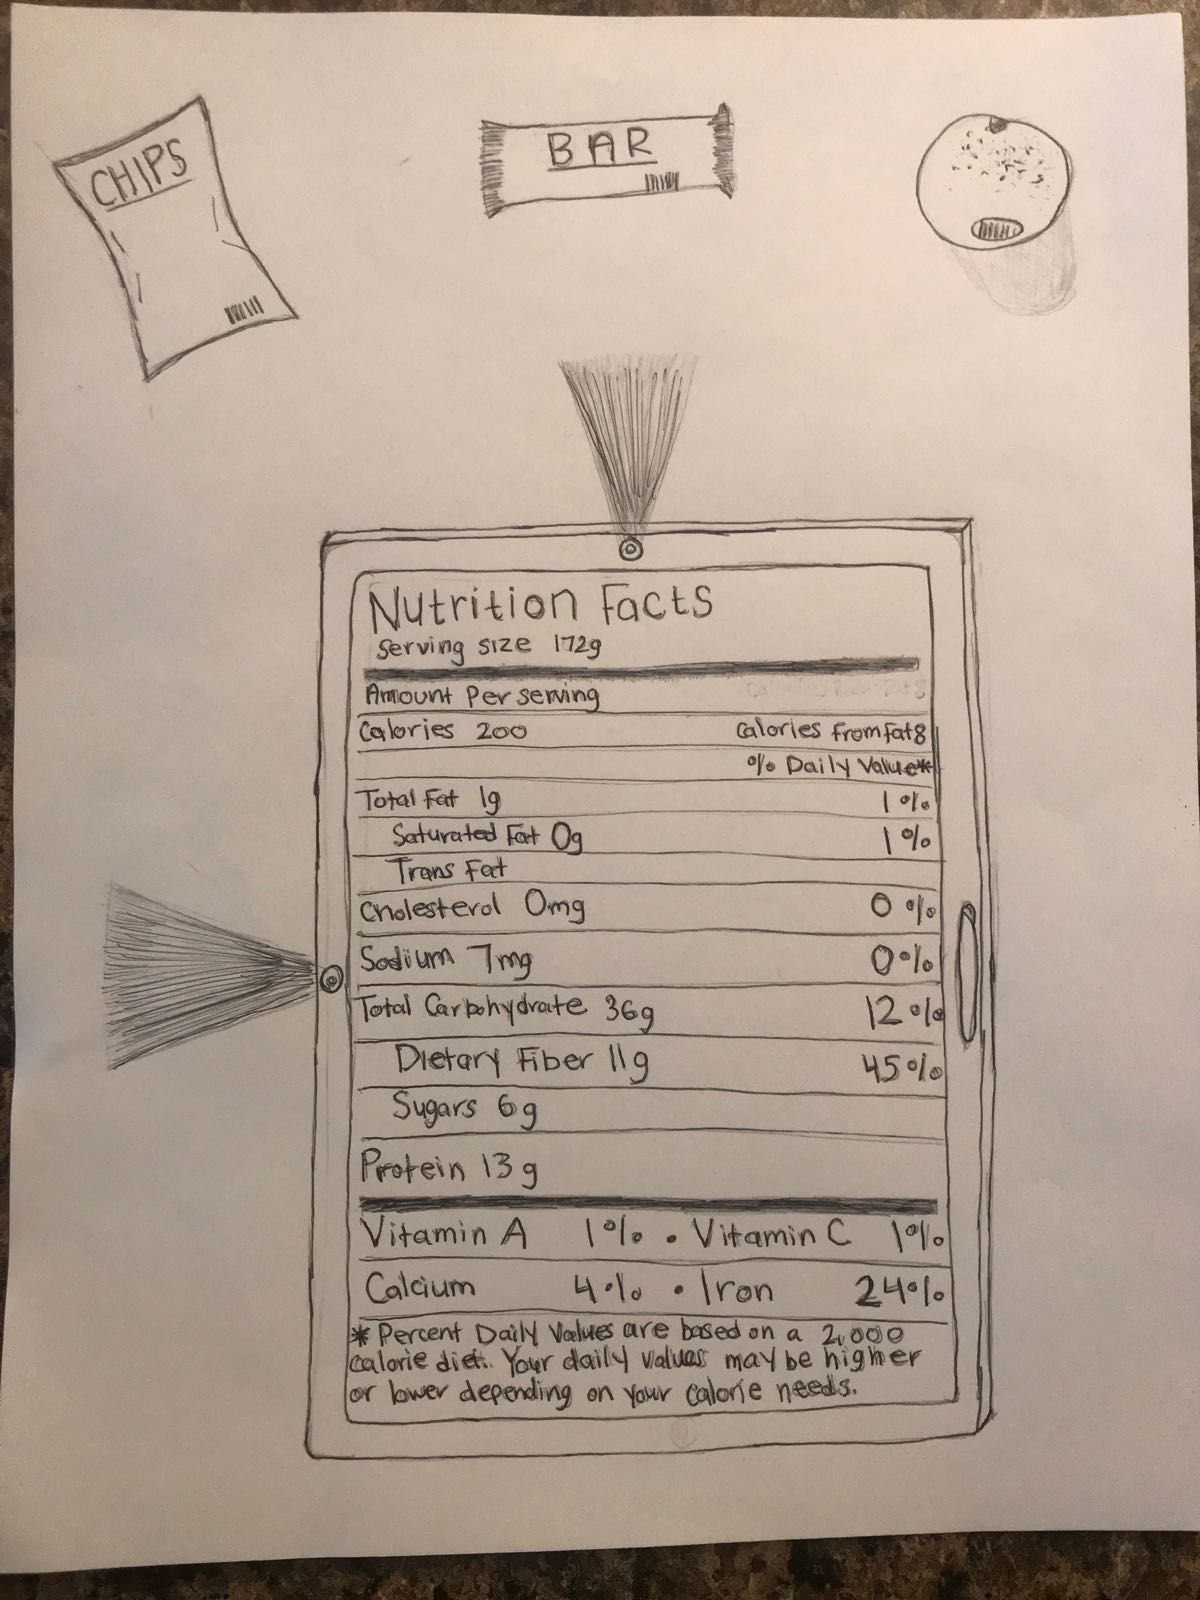 CHIPS
BAR
Nutrition Facts
Serving size 172g
Amount Per serving
Calories 200 Calories From Fat 8
% Daily Value*
Total Fat 1g 1%
Saturated Fat 0g 1%
Trans Fat
Cholesterol 0mg 0%
Sodium 7mg 0%
Total Carbohydrate 36g 12%
Dietary Fiber 11g 45%
Sugars 6g
Protein 13g
Vitamin A 1% • Vitamin C 1%
Calcium 4% • Iron 24%
* Percent Daily Values are based on a 2,000
calorie diet. Your daily values may be higher
or lower depending on your calorie needs.